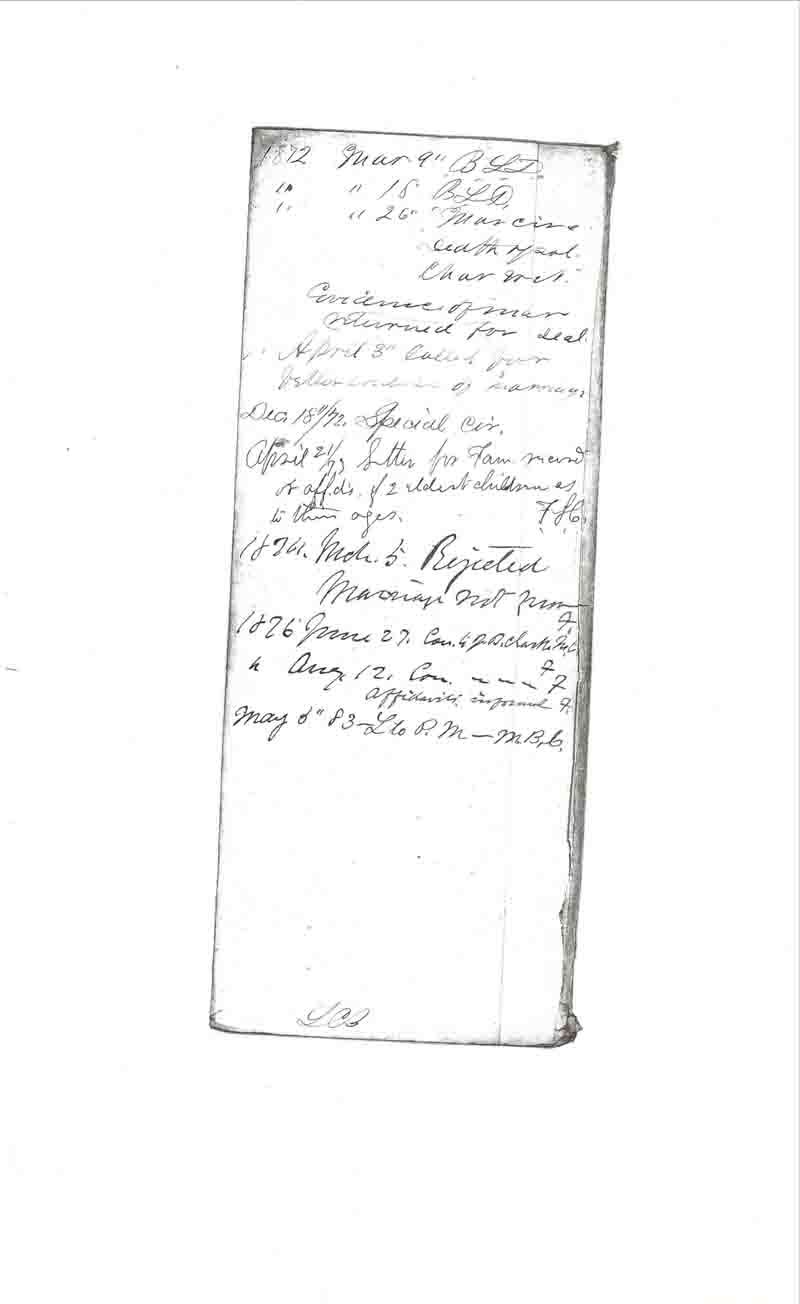 1872 Mar 9" B L D.
" " 18 B L D.
" " 26" Mar cir &
death of sol.
Char wit.
Evidence of mar
returned for seal
" April 3" Called for
better evidence of marriage
Dec. 18"/72. Special Cir.
April 21/73 Letter for Fam record
or affids. of 2 eldest children as
to their ages. F.S.C.
1874. Mch. 5. Rejected
Marriage not prov
F.
1876 June 27. Con. to J. D. Clark.
" Aug. 12. Con. " " " F
Affidavits informal F.
May 5" 83 - L to P. M - M. B. C.
L C B